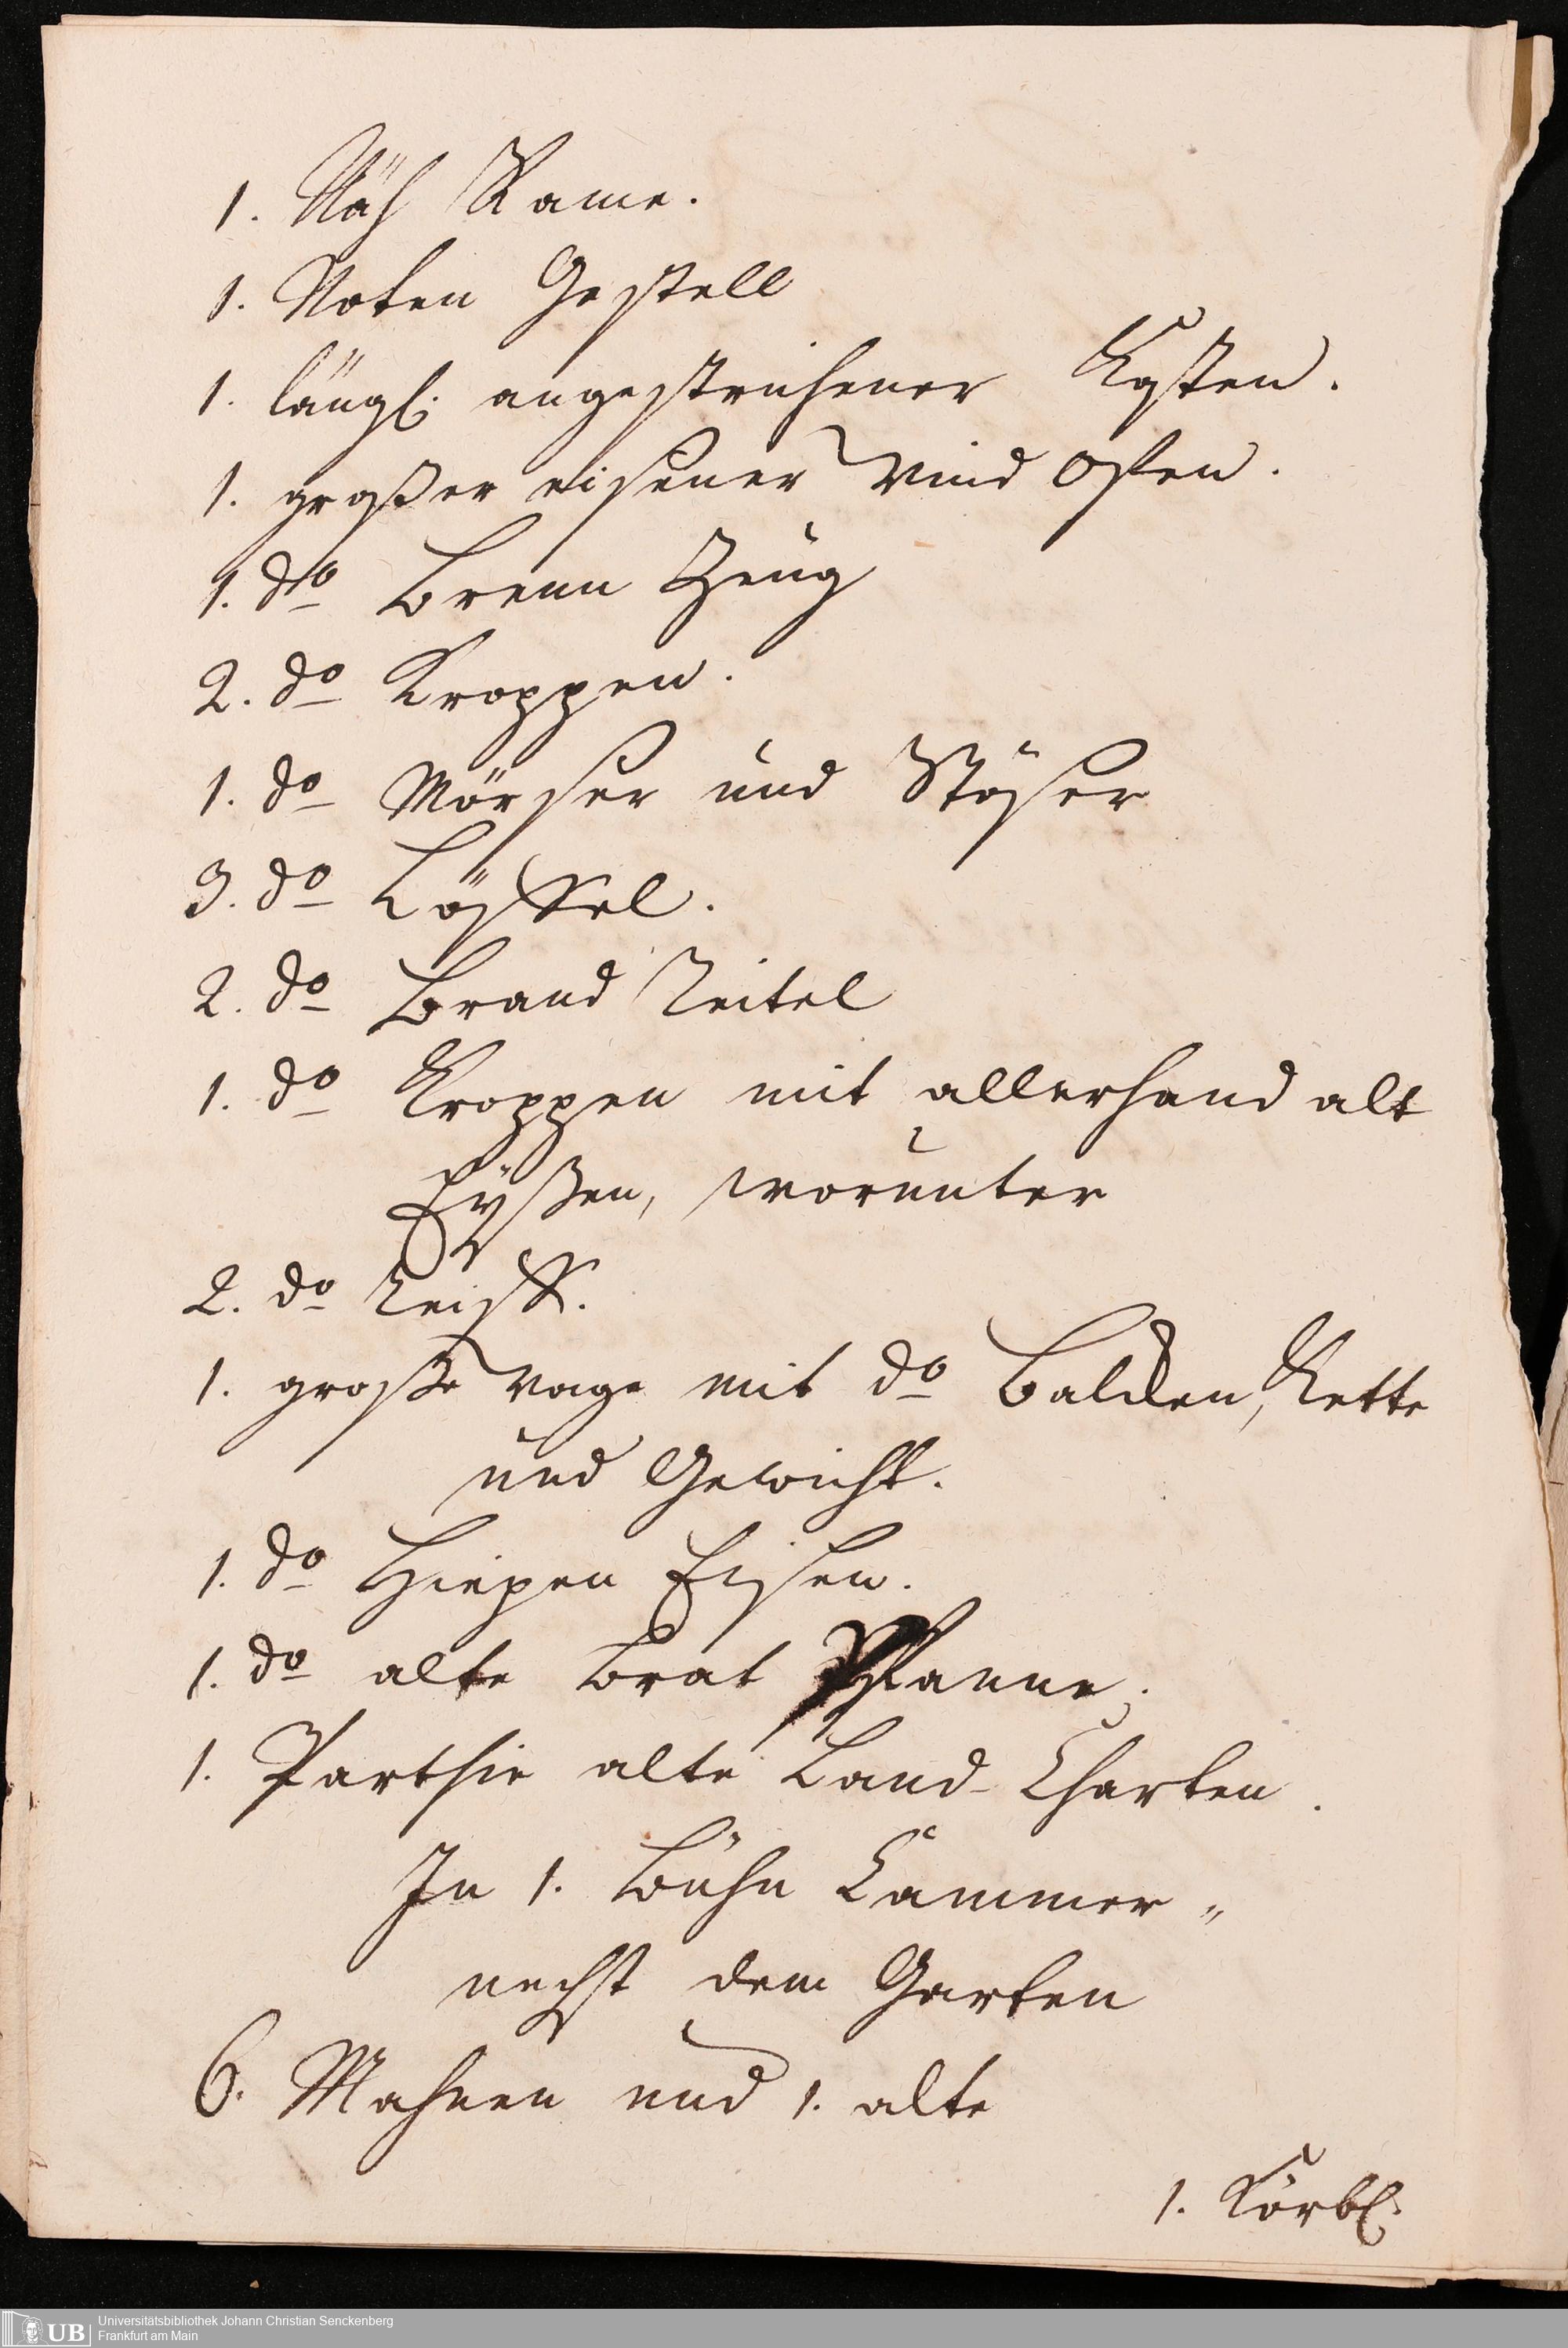 1. Näh Rame.
1. Noten Gestell
1. längl. angestrichener Kasten.
1. großer eisener Wind Ofen.
1. do Brenn Zeug
2. do Kroppen.
1. do Mörser und Stöser
3. do Löffel.
2. do Brand Reitel
1. do Kroppen mit allerhand alt
Eyßen, worunter
2. do Reiff.
1. große Wage mit do Balcken, Kette
und Gewicht.
1. do Hiepen Eisen.
1. do alte Brat Pfanne.
1. Parthie alte Land-Charten.
In 1. Bühn Cammer
nechst dem Garten
6. Mahnen und 1. alte
1. Körbl.
UB
Universitätsbibliothek Johann Christian Senckenberg
Frankfurt am Main